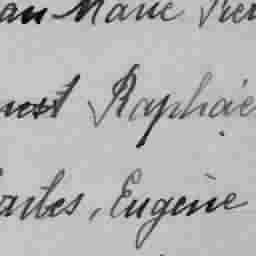 an Marie Pier
nest Raphae
arles, Eugène